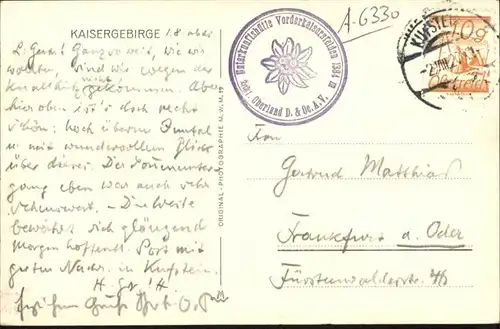 KAISERGEBIRGE 1.8 aber
L. Gerda! Ganz so weit, wie wir
wollten, sind wir wegen der
nicht gekommen. Aber
hier oben ist's doch recht
schön: hoch überm Inntal
u. mit wundervollem Blick
über dieses. Der Sonnenunter-
gang eben war auch sehr
sehenswert. – Die Weste
bewährt sich glänzend
Morgen hoffentl. Post mit
guten Nachr. in Kufstein.
H. Gr.
Gruß
ORIGINAL-PHOTOGRAPHIE M.W.M. 19
Unterkunftshütte Vorderkaiserfelden 1384 m
Oberland D. & Oe. A. V.
A-6330
KUFSTEIN
Frau
Gertrud Matthias
Frankfurt a. Oder
Fürstenwalderstr.